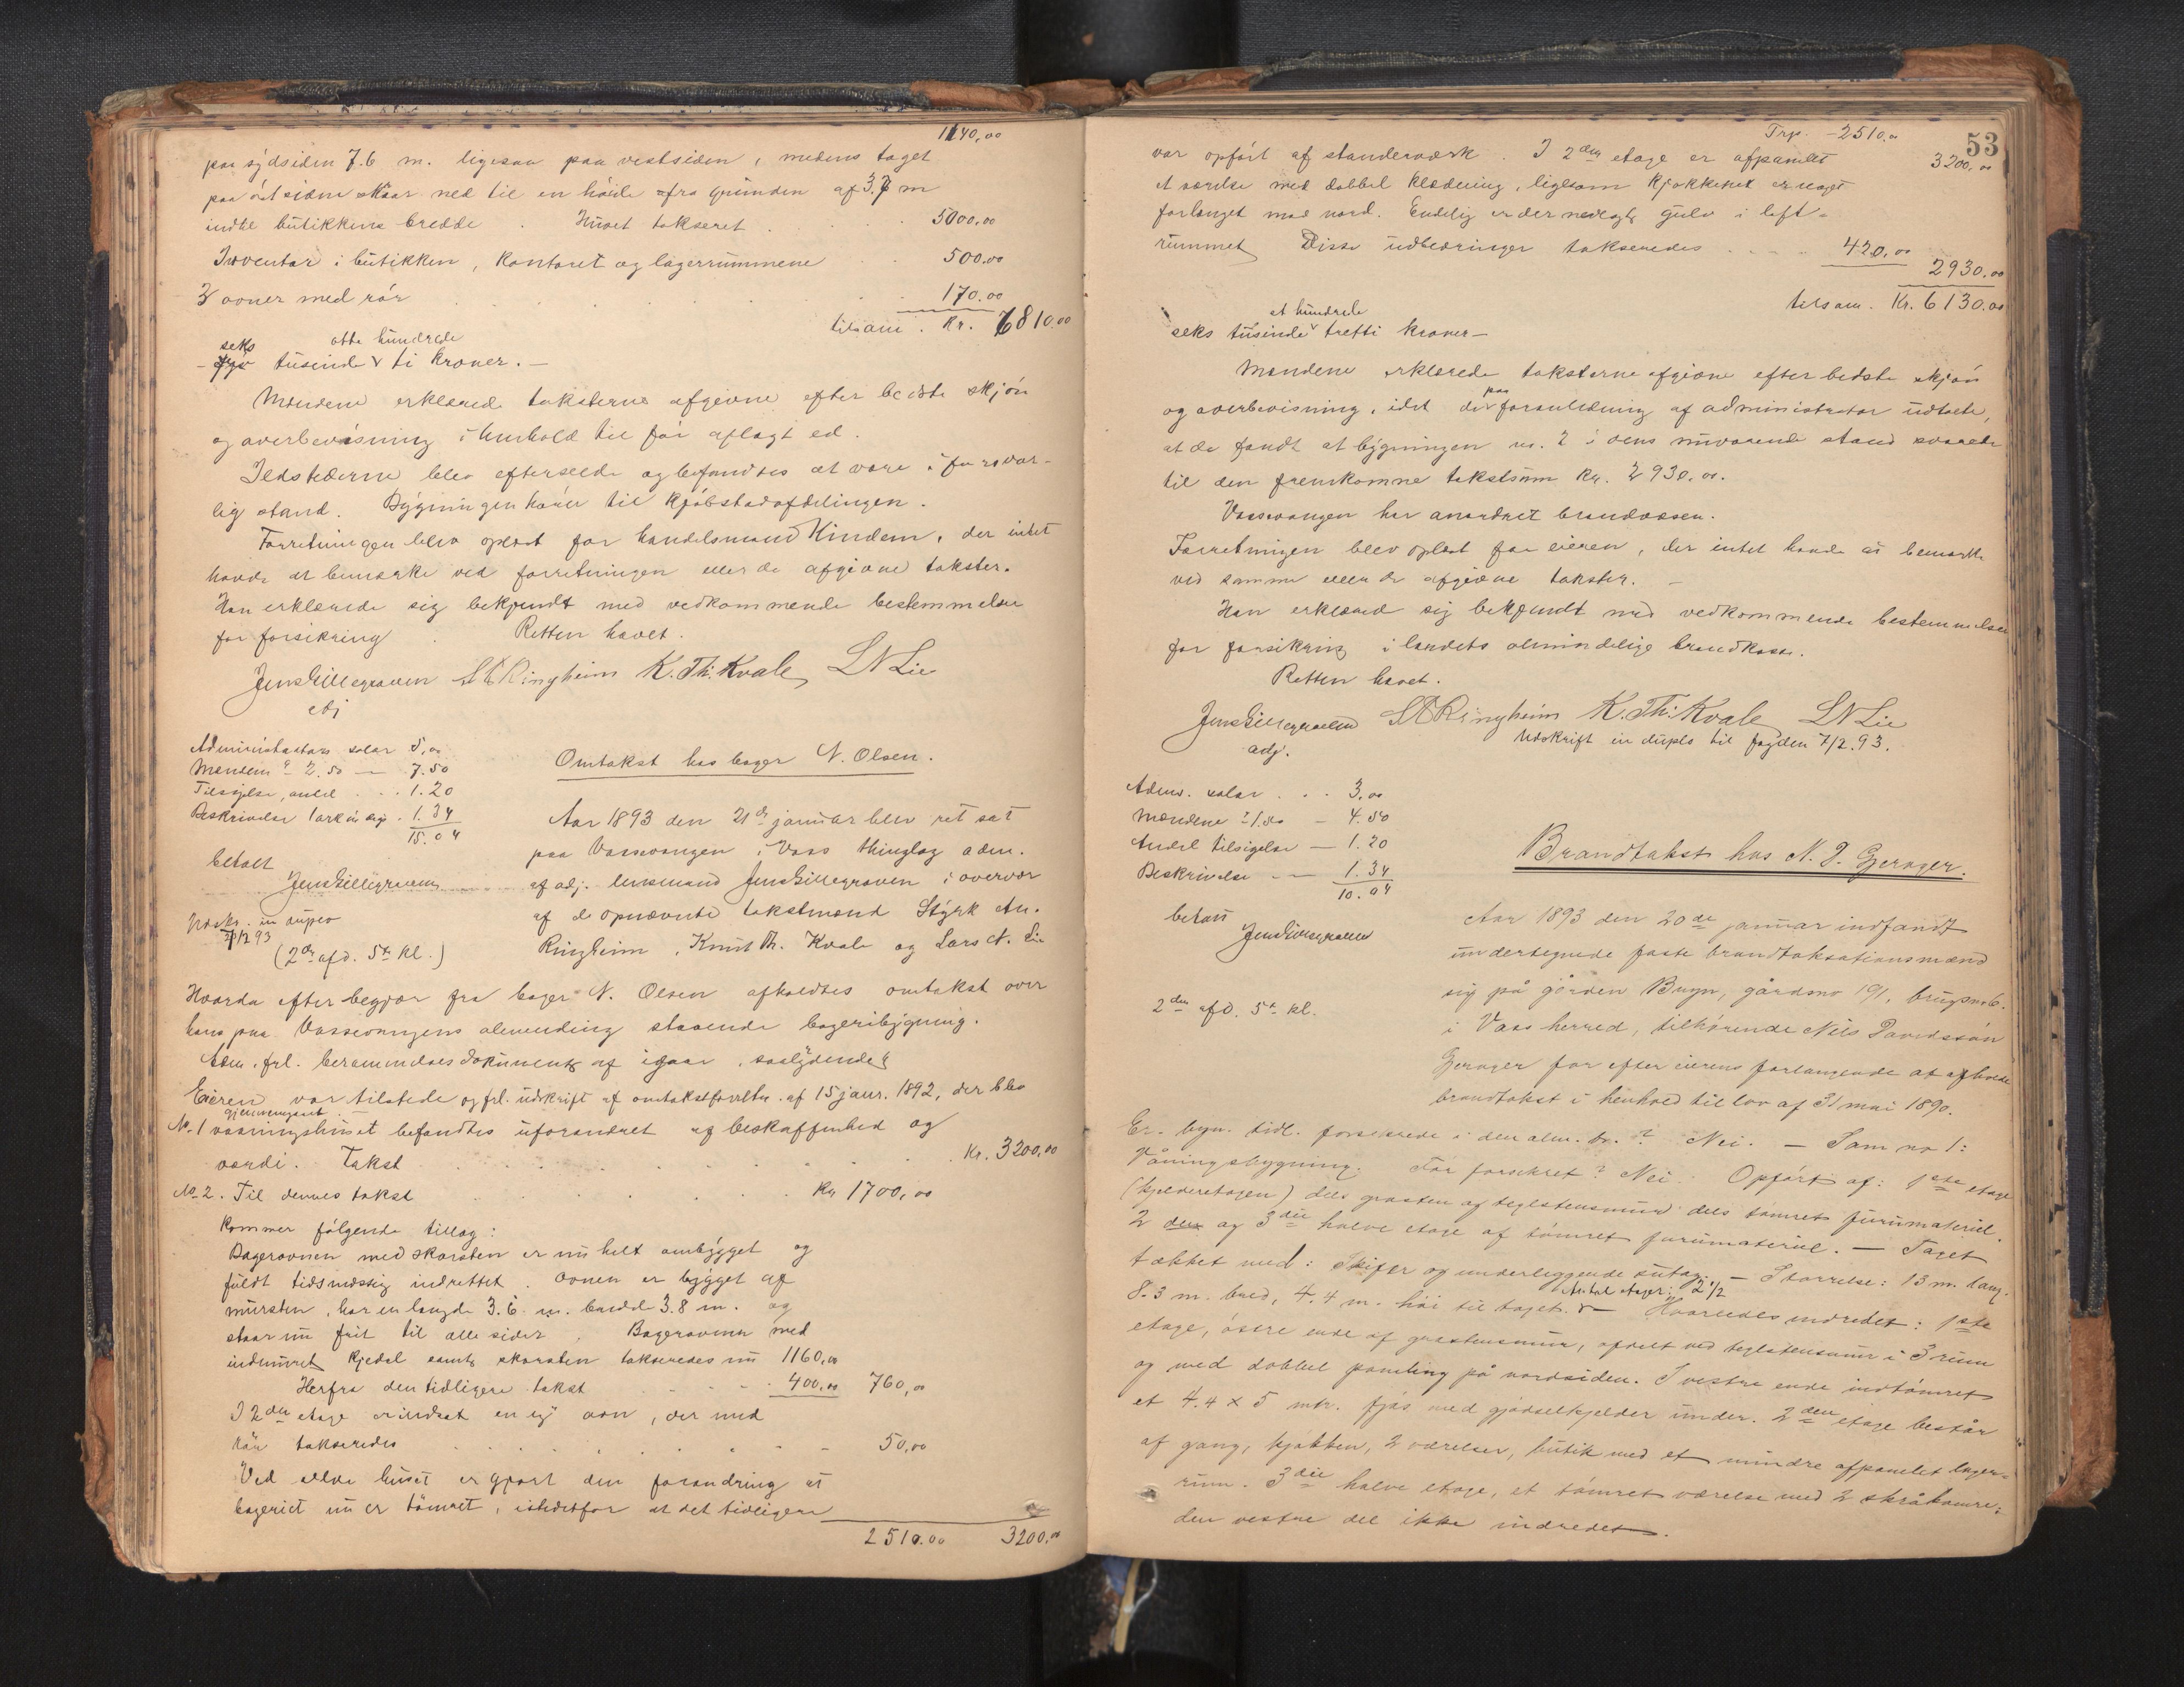 1140,00
paa sydsiden 7.6 m. ligesaa paa vestsiden, medens taget
paa østsiden skraar ned til en høide fra grunden af 3.7 m
indtil butikkens bredde. Huset takseret . . . 5000,00
Inventar i butikken, kontoret og lagerrummene . . 500.00
3 ovner med rør . . . . . . 170.00
tilsam. Kr. 6810.00
seks otte hundrede
- tusinde ti kroner. -
Mændene erklærede taksterne afgivne efter bedste skjøn
og overbevisning i henhold til før aflagt ed.
Ildstederne blev efterseede og befandtes at være i forsvar-
lig stand. Bygningen hører til kjøbstadafdelingen.
Forretningen blev oplæst for handelsmand Hindem, der intet
havde at bemærke ved forretningen eller de afgivne takster.
Han erklærede sig bekjendt med vedkommende bestemmelser
for forsikring. Retten hævet.
Jens Gillegraven S A Ringheim K. Th. Kvale, L N Lie
adj
Administrators salær 5,00
Mændene à 2.50 — 7.50
Tilsigelse, andel . . . 1.20
Beskrivelse 1 ark in dupl. . 1.34
15.04
betalt
Jens Gillegraven
Udskr. in duplo
7/2 93
(2den afd. 5te kl.)
Omtakst hos bager N. Olsen.
Aar 1893 den 21de januar blev ret sat
paa Vossevangen i Voss thinglag adm.
af adj. lensmand Jens Gillegraven i overvær
af de opnævnte takstmænd Styrk An.
Ringheim, Knut Th. Kvale og Lars N. Lie
Hvorda efter begjær fra bager N. Olsen afholdtes omtakst over
hans paa Vossevangens almending staaende bageribygning.
Adm. frl. berammelsesdokument af igaar, saalydende
Eieren var tilstede og frl. udskrift af omtakstforretn. af 15 januar. 1892, der blev
gjennemgaaet. —
No. 1 vaaningshuset befandtes uforandret af beskaffenhed og
værdi. Takst . . . . . . . . Kr. 3200,00
No. 2. Til dennes takst . . . . . Kr 1700,00
kommer følgende tillæg:
Bagerovnen med skorsten er nu helt ombygget og
fuldt tidsmæssig indrettet. Ovnen er bygget af
mursten, har en længde 3.6 m. bredde 3.8 m. og
staar nu frit til alle sider. Bagerovnen med
indmuret kjedel samt skorsten takseredes nu 1160,00
Herfra den tidligere takst . . . . 400,00 760,00
I 2den etage er indsat en ny ovn, der med
rør takseredes . . . . . . . . 50,00
Ved selve huset er gjort den forandring at
bageriet nu er tømret, istedetfor at det tidligere
2510.00 3200.00
53
Trp. - 2510.00
3200,00
var opført af standerværk. I 2den etage er afpanelet
et værelse med dobbel klædning, ligesom kjøkkenet er noget
forlænget mod nord. Endelig er der nedlagt gulv i loft-
rummet Disse udbedringer takseredes . . . . 420,00
2930.00
tilsam. Kr. 6130.00
et hundrede
seks tusinde tretti kroner —
Mændene erklærede taksterne afgivne efter bedste skjøn
og overbevisning, idet de paa foranledning af administrator udtalte,
at de fandt at bygningen no. 2 i dens nuværende stand svarede
til den fremkomne takstsum Kr. 2930,00.
Vossevangen har anordnet brandvæsen.
Forretningen blev oplæst for eieren, der intet havde at bemærke
ved samme eller de afgivne takster. —
Han erklæred sig bekjendt med vedkommende bestemmelser
for forsikring i landets almindelige brandkasse.
Retten hævet.
Jens Gillegraven S A Ringheim K. Th. Kvale L N Lie
adj.
Udskrift in duplo til fogden 7/2. 93.
Admr. salær . . . 3,00
Mændene à 1.50 — 4.50
Andel tilsigelse — 1.20
Beskrivelse — — 1.34
10.04
betalt
Jens Gillegraven
2den afd. 5te kl.
Brandtakst hos N. D. Gjerager.
Aar 1893 den 20de januar indfandt
undertegnede faste brandtaksationsmænd
sig på gården Bryn, gårdsno 191, brugsno 6.
i Voss herred, tilhørende Nils Davidssøn
Gjerager for efter eierens forlangende at afholde
brandtakst i henhold til lov af 31 mai 1890.
Er bygn. tidl. forsikrede i den alm. br. ? Nei. — Som no 1:
Våningsbygning. Før forsikret? Nei. Opført af: 1ste etage
(kjelderetagen) dels gråsten og teglstensmur dels tømret furumateriel.
2den og 3die halve etage af tømret furumateriel. — Taget
tækket med: Skifer og underliggende sutag. — Størrelse: 13 m. lang.
Antal etager: 2 1/2
8.3 m. bred, 4.4 m. høi til taget. — Hvorledes indredet: 1ste
etage, østre ende af gråstensmur, afdelt ved teglstensmur i 3 rum
og med dobbel panling på nordsiden. I vestre ende indtømret
et 4.4 x 5 mtr. fjøs med gjødselkjelder under. 2den etage består
af gang, kjøkken, 2 værelser, butik med et mindre afpanelet lager-
rum. 3die halve etage, et tømret værelse med 2 skråkamre:
den vestre del ikke indredet.